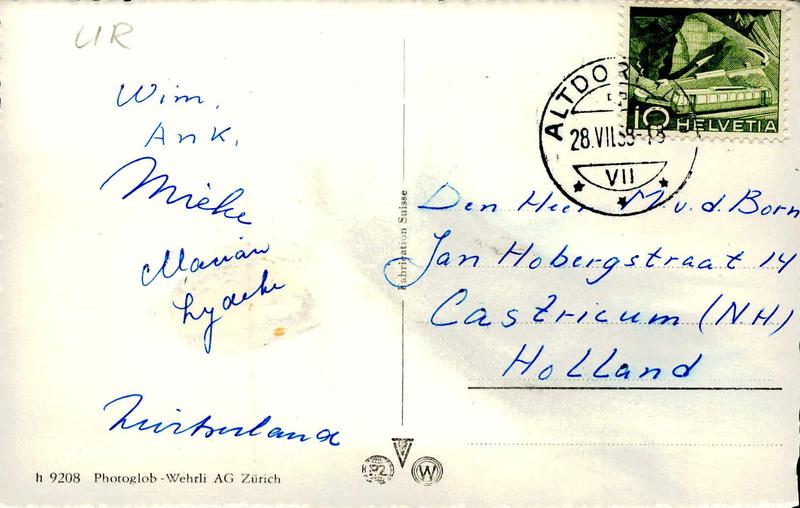 UR
Wim.
Ank.
Mieke
Marian
Lydeke
Zwitserland
h 9208 Photoglob-Wehrli AG Zürich
Fabrication Suisse
PZ
W
ALTDORF
28.VII.
VII
10 HELVETIA
Den Heer M.v.d. Born
Jan Hobergstraat 14
Castricum (NH)
Holland